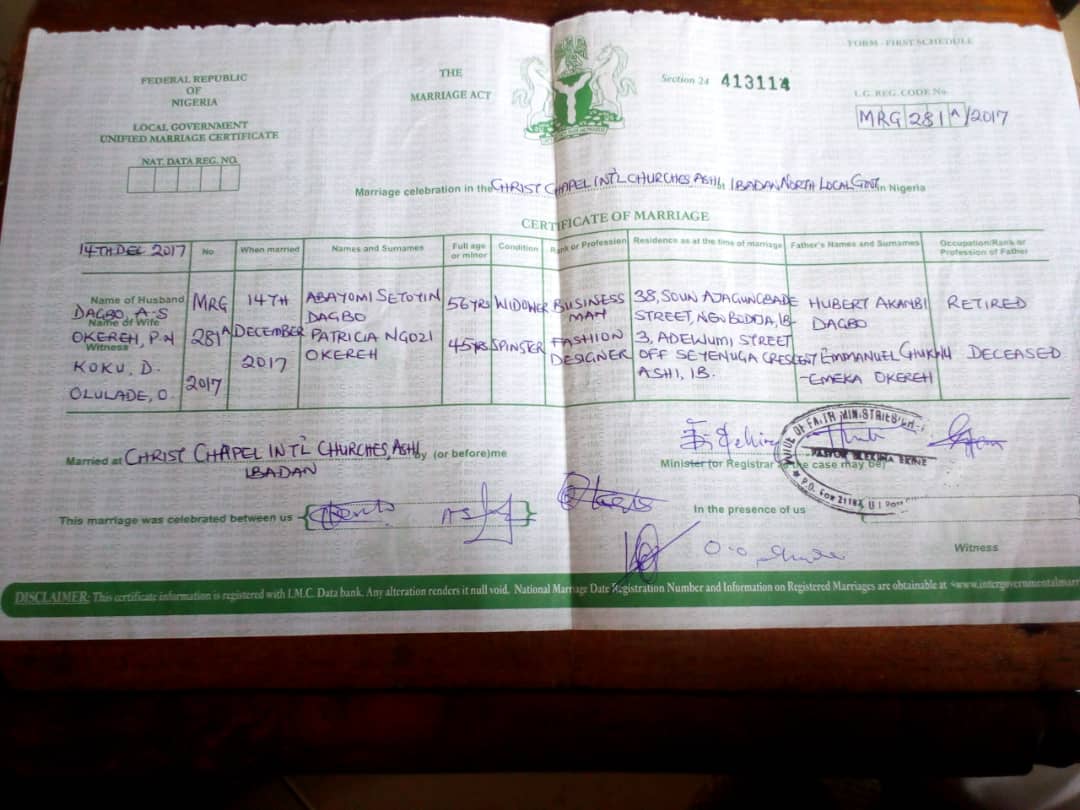 FORM - FIRST SCHEDULE
FEDERAL REPUBLIC
OF
NIGERIA
LOCAL GOVERNMENT
UNIFIED MARRIAGE CERTIFICATE
NAT. DATA REG. NO.
THE
MARRIAGE ACT
Section 24 413114
L.G. REG. CODE No.
MRG 281 A/2017
Marriage celebration in the CHRIST CHAPEL INT'L CHURCHES ASHI, IBADAN NORTH LOCAL GOVT in Nigeria
CERTIFICATE OF MARRIAGE
14TH DEC 2017
No
When married
Names and Surnames
Full age or minor
Condition
Rank or Profession
Residence as at the time of marriage
Father's Names and Surnames
Occupation/Rank or Profession of Father
Name of Husband
DAGBO, A-S
Name of Wife
OKEREH, P.N
Witness
KOKU, D.
OLULADE, O.
MRG
281A
2017
14TH
DECEMBER
2017
ABAYOMI SETOYIN
DAGBO
PATRICIA NGOZI
OKEREH
56YRS
45YRS
WIDOWER
SPINSTER
BUSINESS
MAN
FASHION
DESIGNER
38, SOUN AJAGUNGBADE
STREET, NEW BODIJA, IB
3, ADEWUMI STREET
OFF SEYENUGA CRESCENT
ASHI, IB.
HUBERT AKANBI
DAGBO
EMMANUEL CHUKWU
-EMEKA OKEREH
RETIRED
DECEASED
Married at CHRIST CHAPEL INT'L CHURCHES, ASHI by (or before) me
IBADAN
Minister (or Registrar as the case may be)
This marriage was celebrated between us
In the presence of us
Witness
DISCLAIMER: This certificate information is registered with I.M.C. Data bank. Any alteration renders it null void. National Marriage Date Registration Number and Information on Registered Marriages are obtainable at